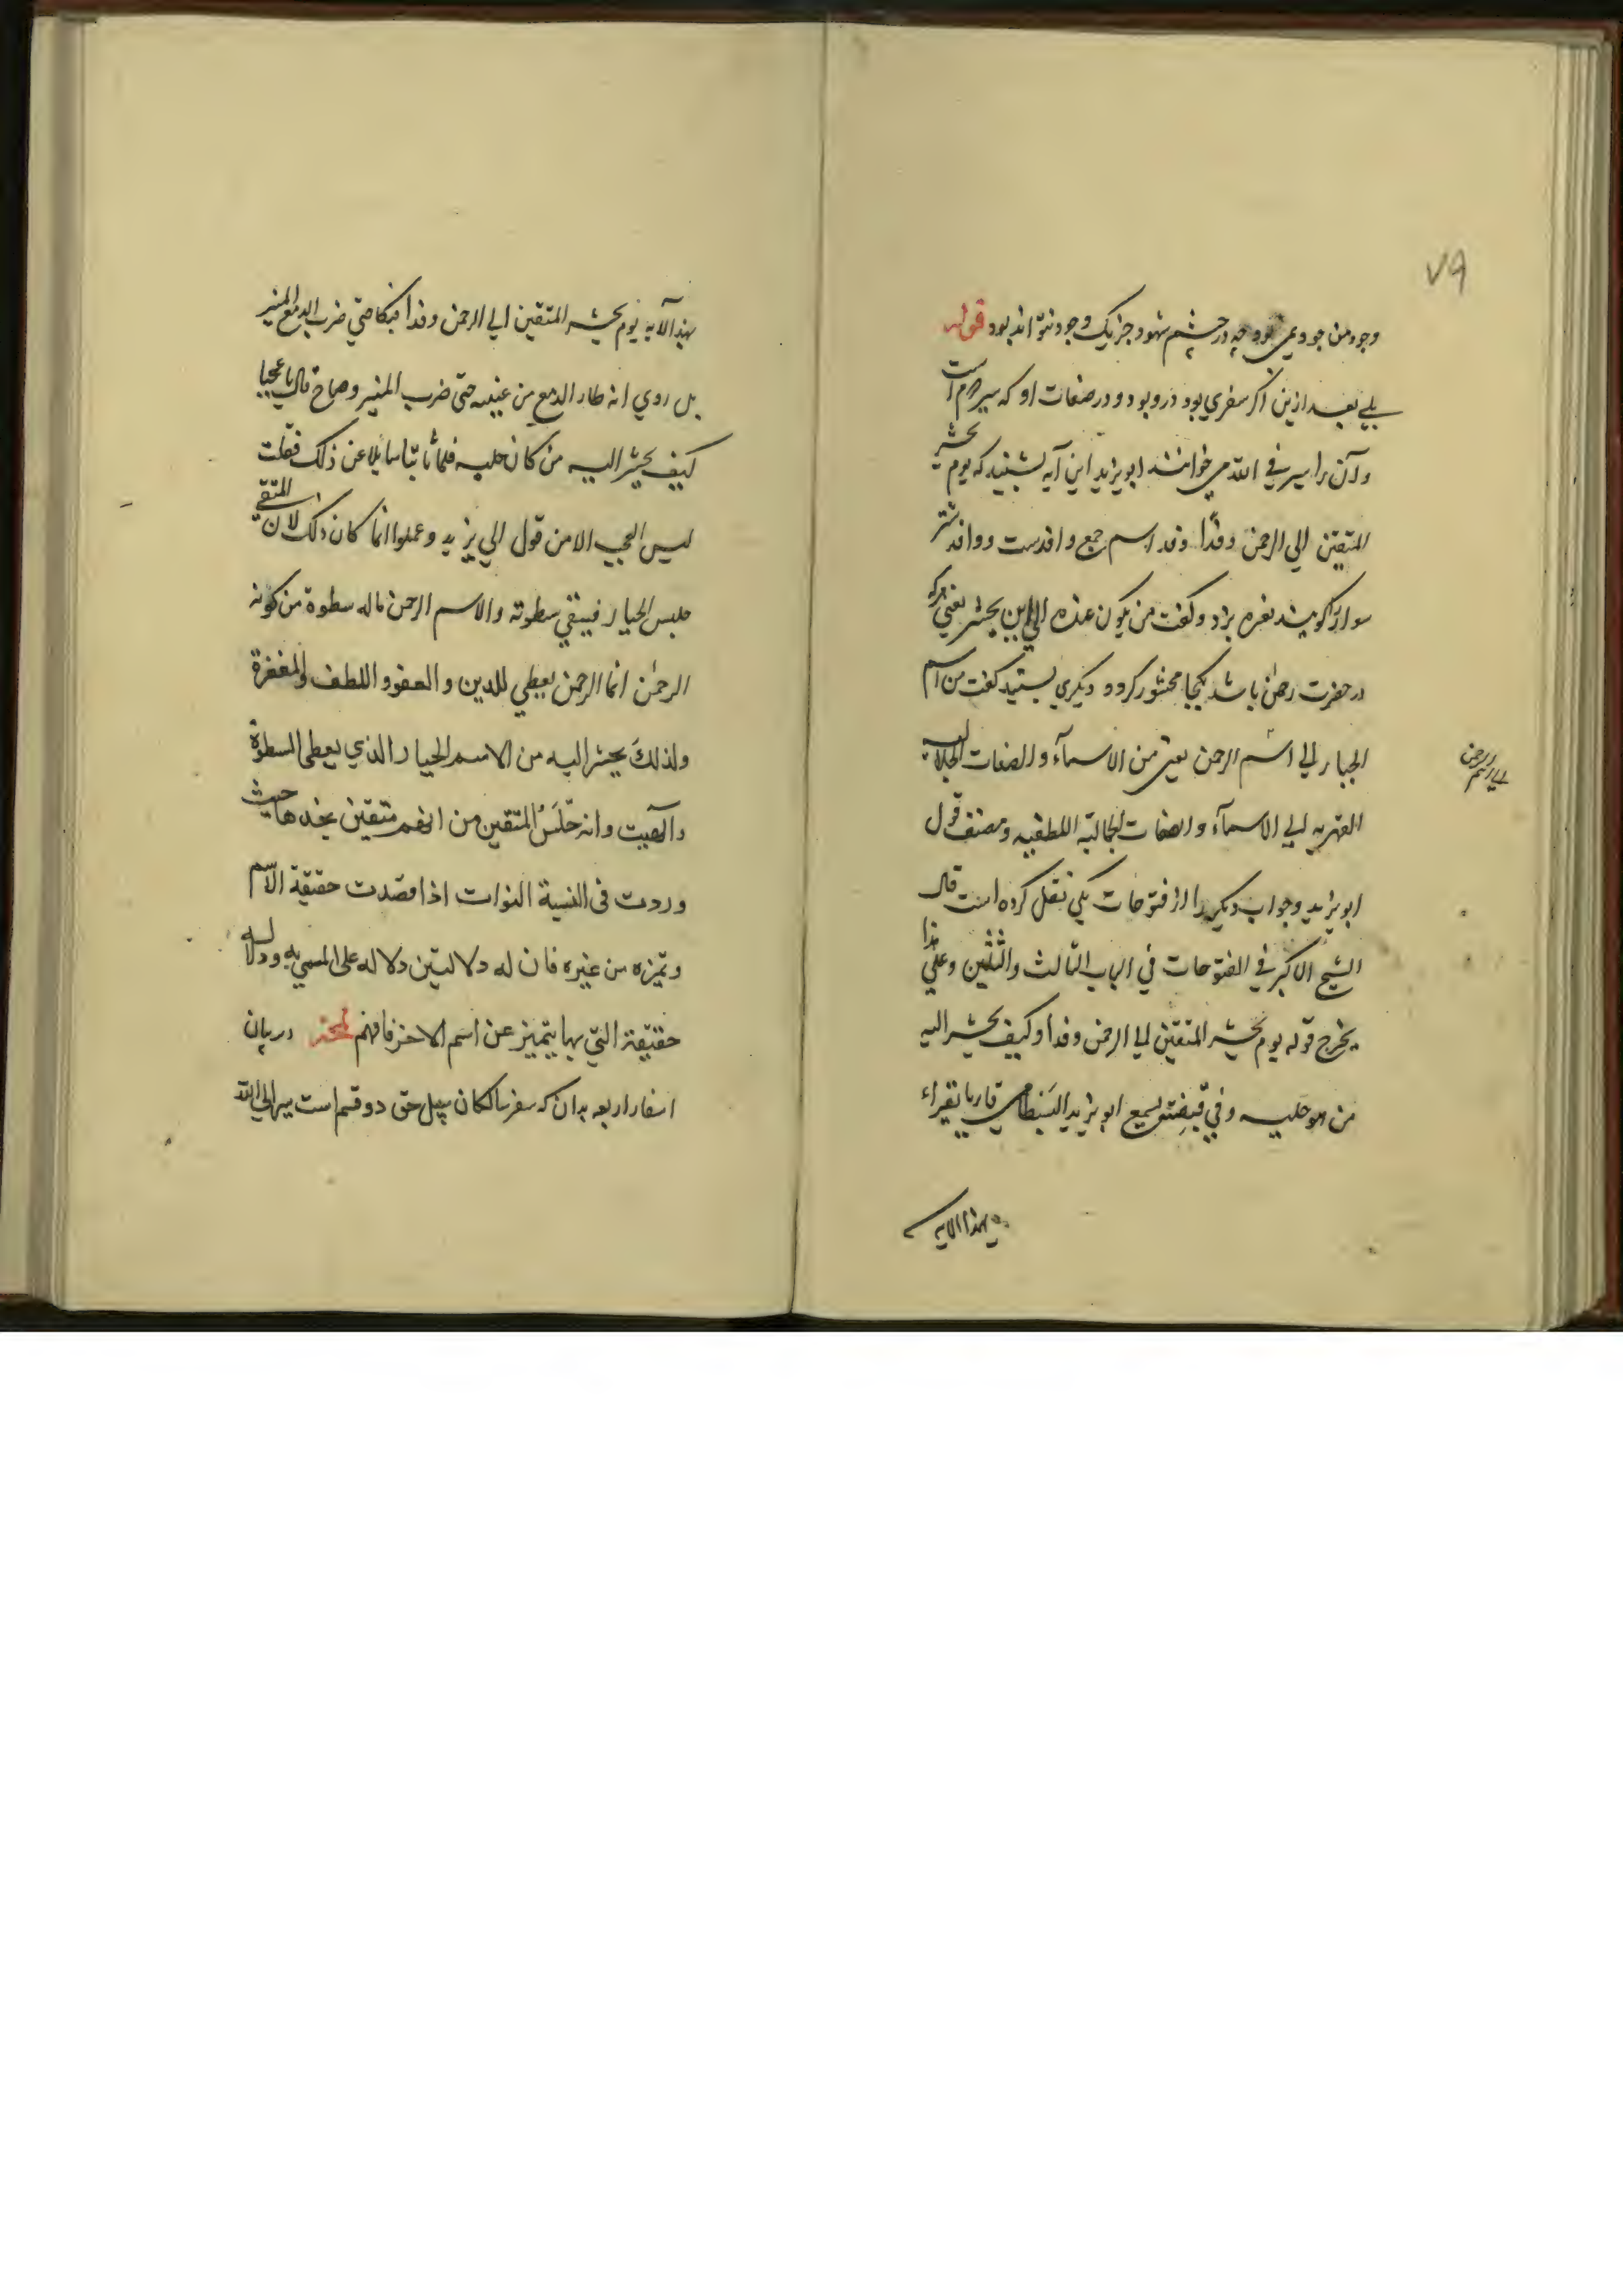 ٧٩
وجود من جودیمی بود چه در چشم شهود جز یک وجود نتواند بود قوله
بلی بعد ازین اکر سفری بود درو بود و در صفات او که سیر دوم است
و آن را سیر فی الله می خوانند ابویزید این آیه بشنید که یوم نحشر
المتقین الی الرحمن وفدًا وفد اسم جمع وافدست و وافد شتر
سوار را کویند نعره بزد و کفت من یکون عنده الی این یحشر یعنی هرکه
در حضرت رحمن باشد بکجا محشور کردد دیکری بشنید کفت من اسم
الجبار الی اسم الرحمن یعنی من الاسمآء و الصفات الجلالیه
القهریه الی الاسمآء و الصفات الجمالیه اللطفیه و مصنف قول
ابویزید و جواب دیکریرا از فتوحات مکی نقل کرده است قال
الشیخ الاکبر فی الفتوحات فی الباب الثالث والثلثین وعلی هذا
یخرج قوله یوم نحشر المتقین الی الرحمن وفدا وکیف یحشر الیه
من هو جلیسه وفی قبضته سمع ابو یزید البسطامی قاریا یقراء
بهذا الایه
الی اسم الرحمن
بهذا الآیه یوم نحشر المتقین الی الرحمن وفدا فبکا حتی ضرب الدمع المنبر
بل روی انه طار الدمع من عینیه حتی ضرب المنبر وصاح قال یا عجبا
کیف یحشر الیه من کان جلیسه فلما سایلا عن ذلک فقلت
لیس العجب الا من قول ابی یزید و عملوا انما کان ذلک لان المتقی
جلیس الجبار فیتقی سطوته والاسم الرحمن ماله سطوة من کونه
الرحمٰن انما الرحمن یعطی للدین و العفو و اللطف والمغفرة
ولذلکَ یحشر الیه من الاسم الجبار الذی یعطی السطوة
وانه جلَسُ المتقین من متقین حیث
وردت فی النسبة النوات اذا قصدت حقیقة الاسم
وتمیزه من غیره فان له دلالتین دلاله علی المسمی به ودلاله
حقیقة التی بها یتمیز عن اسم الاخر فافهم در بیان
اسفار اربعه بدان که سفر سالکان سبیل حق دو قسم است سیر الی الله